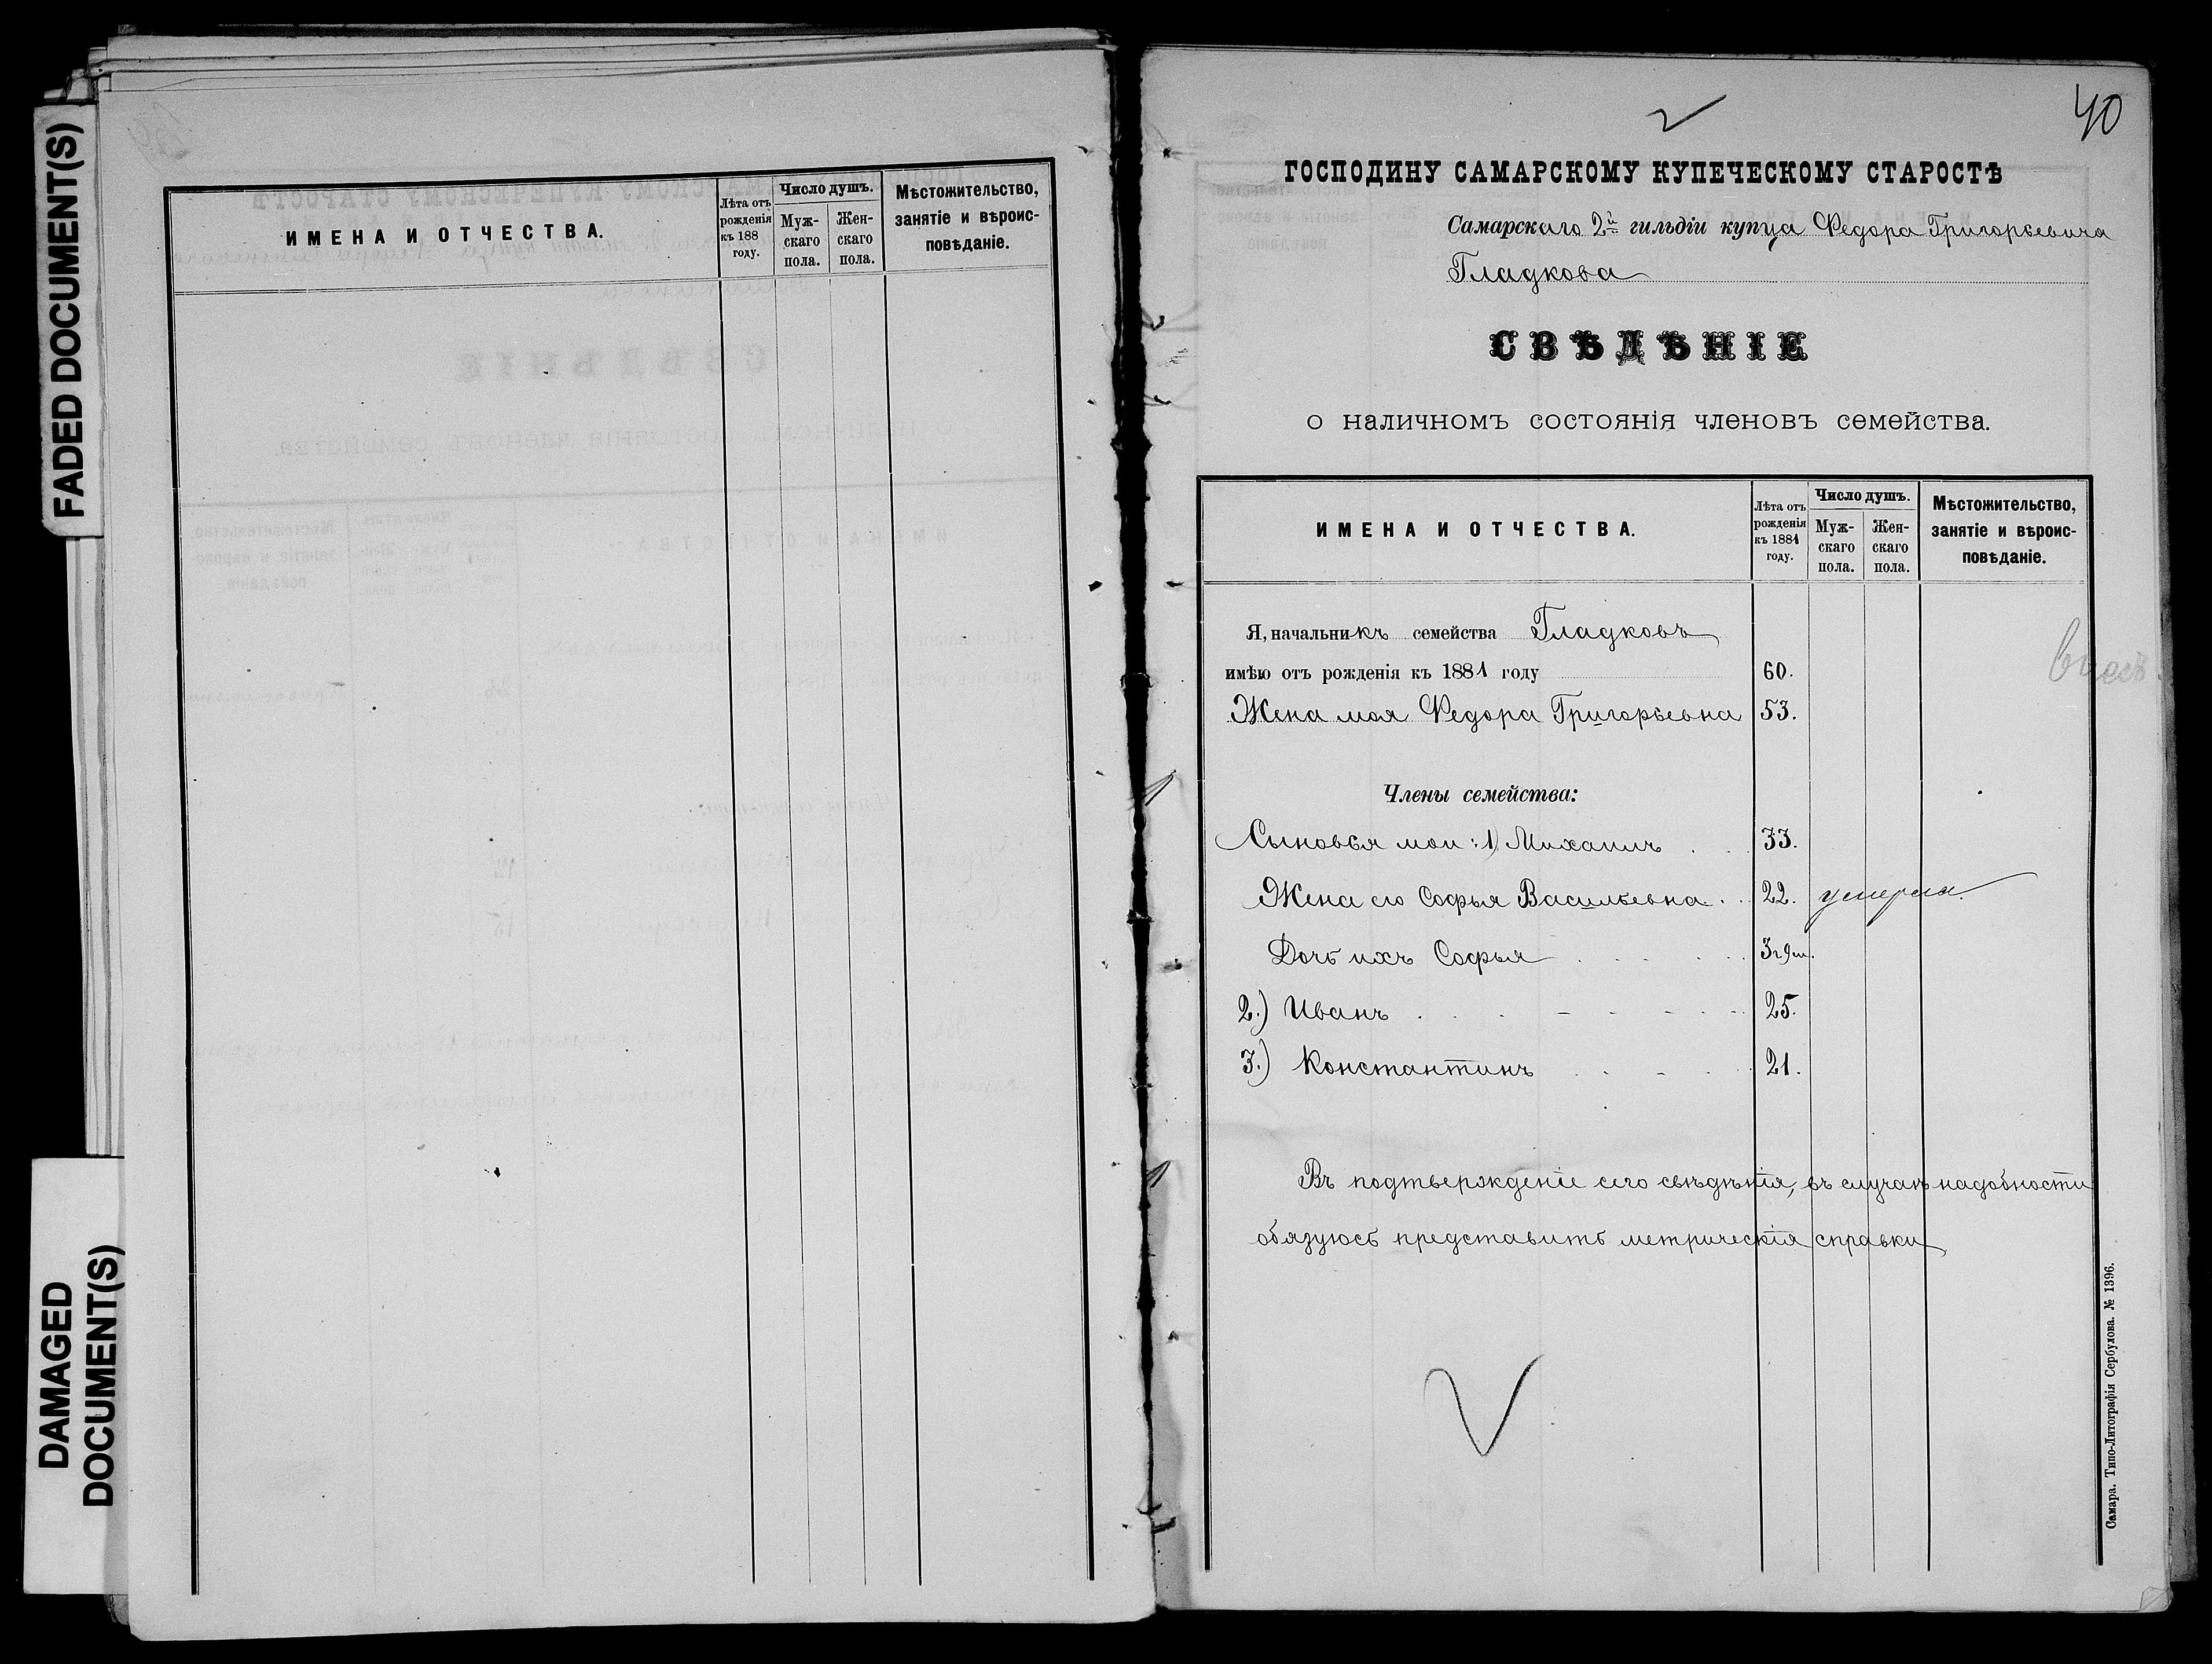 FADED DOCUMENT(S)
DAMAGED
DOCUMENT(S)
ИМЕНА И ОТЧЕСТВА.
Лѣта отъ
рожденія
къ 188
году.
Число душъ.
Муж-
скаго
пола.
Жен-
скаго
пола.
Мѣстожительство,
занятіе и вѣроис-
повѣданіе.
40
ГОСПОДИНУ САМАРСКОМУ КУПЕЧЕСКОМУ СТАРОСТѢ
Самарскаго 2й гильдіи купца Федора Григорьевича
Гладкова
СВѢДѢНІЕ
о наличномъ состоянія членовъ семейства.
ИМЕНА И ОТЧЕСТВА.
Лѣта отъ
рожденія
къ 1881
году.
Число душъ.
Муж-
скаго
пола.
Жен-
скаго
пола.
Мѣстожительство,
занятіе и вѣроис-
повѣданіе.
Я, начальникъ семейства Гладковъ
имѣю отъ рожденія къ 1881 году 60.
Жена моя Федора Григорьевна 53.
Члены семейства:
Сыновья мои: 1) Михаилъ 33.
Жена его Софья Васильевна. 22. умерла.
Дочь ихъ Софья 3 г 9 м.
2.) Иванъ 25.
3.) Константинъ 21.
Въ подтвержденіе сего свѣдѣнія, въ случаѣ надобности
обязуюсь представить метрическія справки
Самара. Типо-Литографія Сербулова. № 1396.